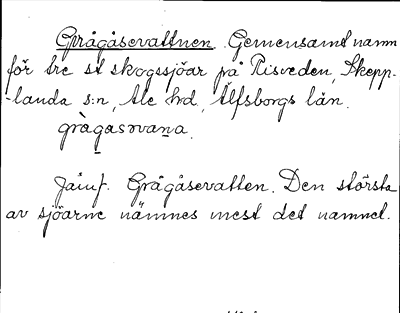 Grågåsevattnen. Gemensamt namn
för tre st skogssjöar på Risveden, Skepp-
-landa s:n, Ale hrd, Älfsborgs län.
gràgasɔvana.
Jämf. Grågåsevatten. Den största
av sjöarne nämnes mest det namnet.